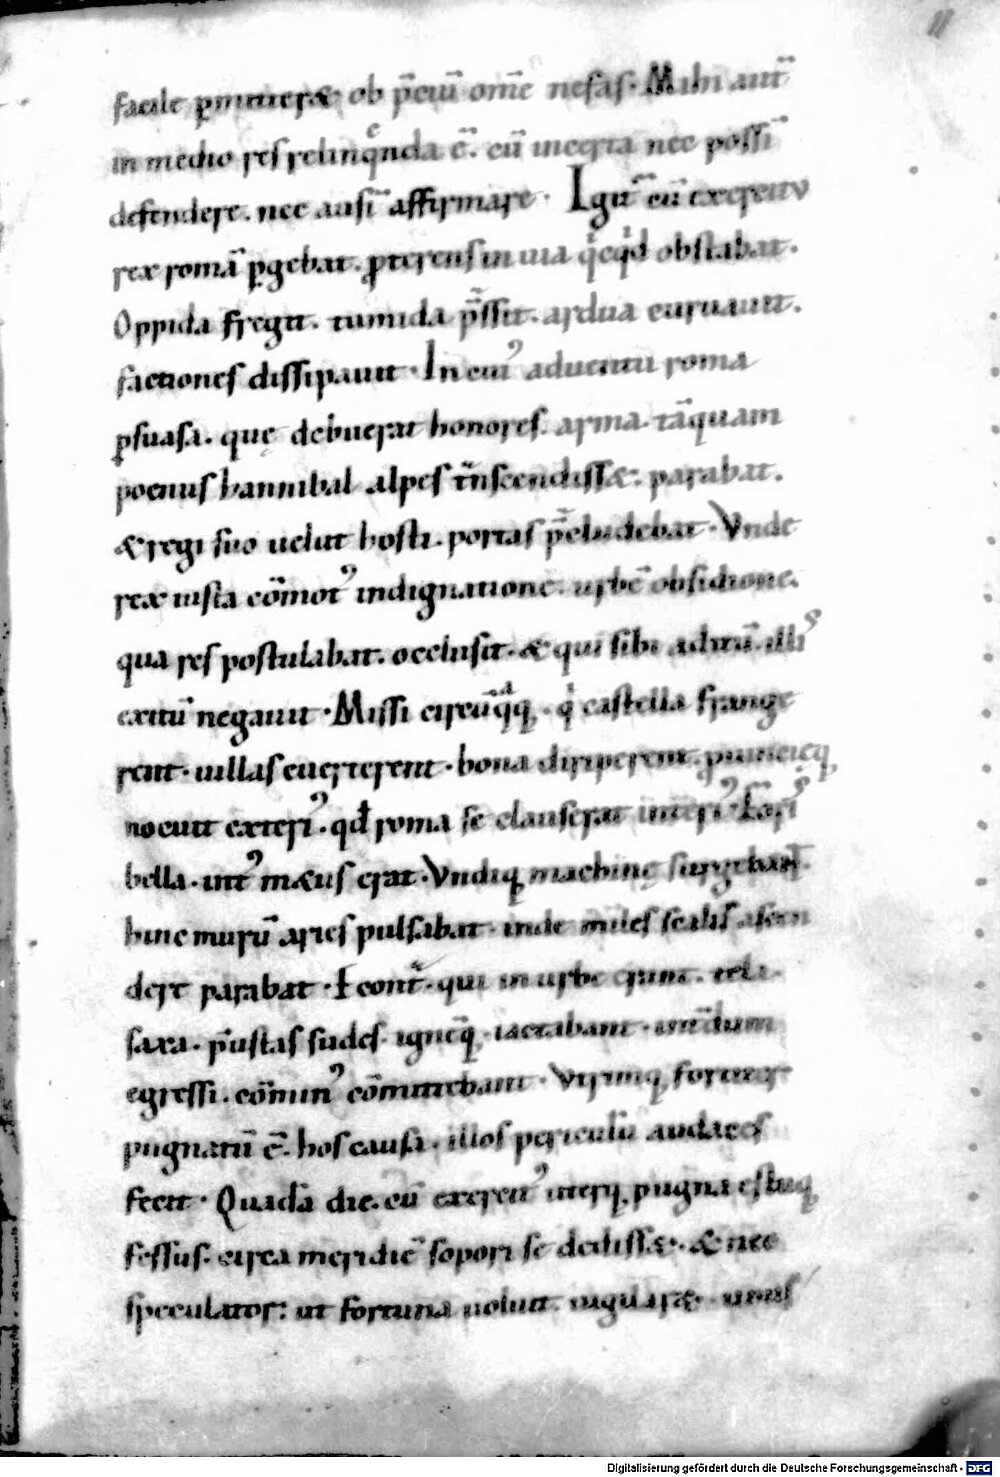 facile pmitteret ob p̄ciū om̄e nefas. Mihi aut̄
in medio res relinq̄nda ē. cū incerta nec possī
defendere. nec ausī affirmare. Igit̄ cū exercitu
rex romā ꝑgebat. ꝓterens in uia qͥcqͥd obstabat.
Oppida fregit. tumida p̄ssit. ardua curuauit.
factiones dissipauit. In eiꝰ aduentu roma
ꝑsuasa. quę debuerat honores. arma. tāquam
poenus hannibal alpes tnscendisset. parabat.
& regi suo uelut hosti. portas p̄cludebat. Vnde
rex iusta cōmotꝰ indignatione. urbē obsidione.
qua res postulabat. occlusit. & qui sibi aditū. illiꝰ
exitū negauit. Missi circūq̄q;. qͥ castella frange
rent. uillas euerterent. bona diriperent. ꝓuincięq;
nocuit exteriꝰ. qđ roma se clauserat interiꝰ. Foriſ
bella. intꝰ metus erat. Vndiq; machinę surgebant.
hinc murū aries pulsabat. inde miles scalis ascen
dere parabat. E cont̄. qui in urbe erant. tela.
saxa. p̄ustas sudes. ignēq; iactabant. int̄dum
egressi. cōminꝰ cōmittebant. Vtrimq; fortiter
pugnatū ē. hos causa. illos periculū audaces
fecit. Quadā die. cū exercitꝰ uterq; pugna estuq;
fessus. circa meridiē sopori se dedisset. & nec
speculator. ut fortuna uoluit. uigilaret. unus